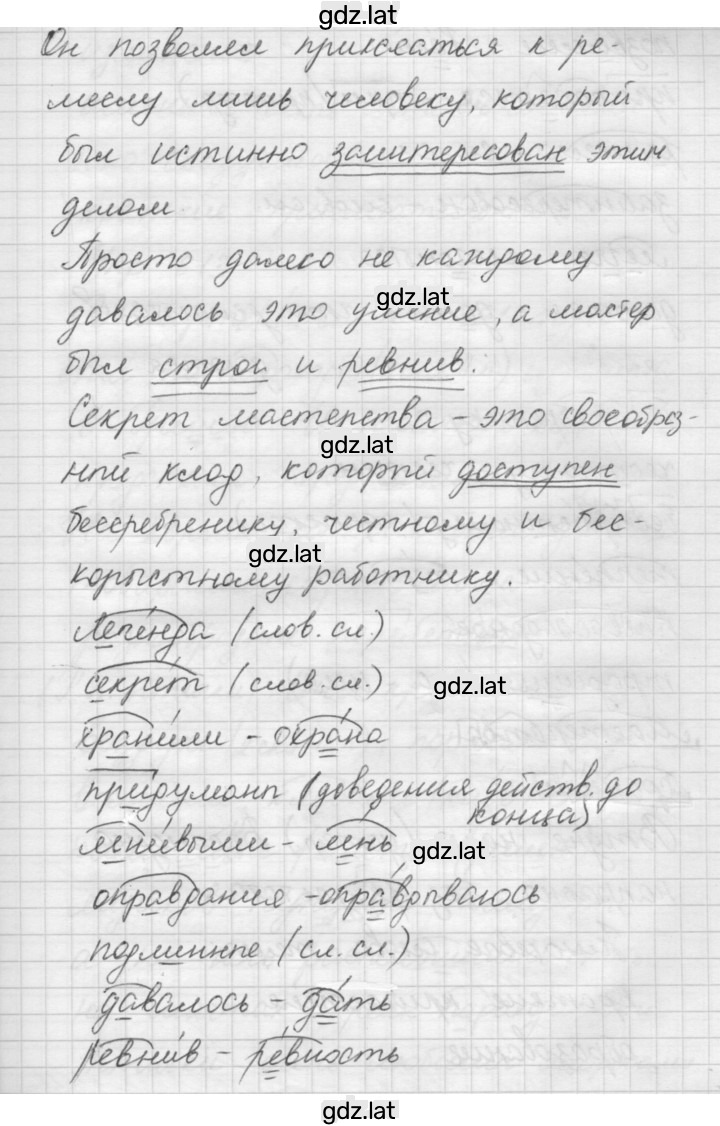 gdz.lat
Он позволял прикасаться к ре-
меслу лишь человеку, который
был истинно заинтересован этим
делом
Просто далеко не каждому
давалось это умение, а мастер
gdz.lat
был строг и ревнив.
Секрет мастерства – это своеобраз-
gdz.lat
ный клад, который доступен
бессребренику, честному и бес-
gdz.lat
корыстному работнику.
Легенда (слов. сл.)
секрет (слов. сл.)
gdz.lat
хранили – охрана
придуманы (доведения действ. до
конца)
ленивыми – лень
gdz.lat
оправдания – оправдывалось
подлинные (сл. сл.)
давалось – дать
ревнив – ревность
gdz.lat